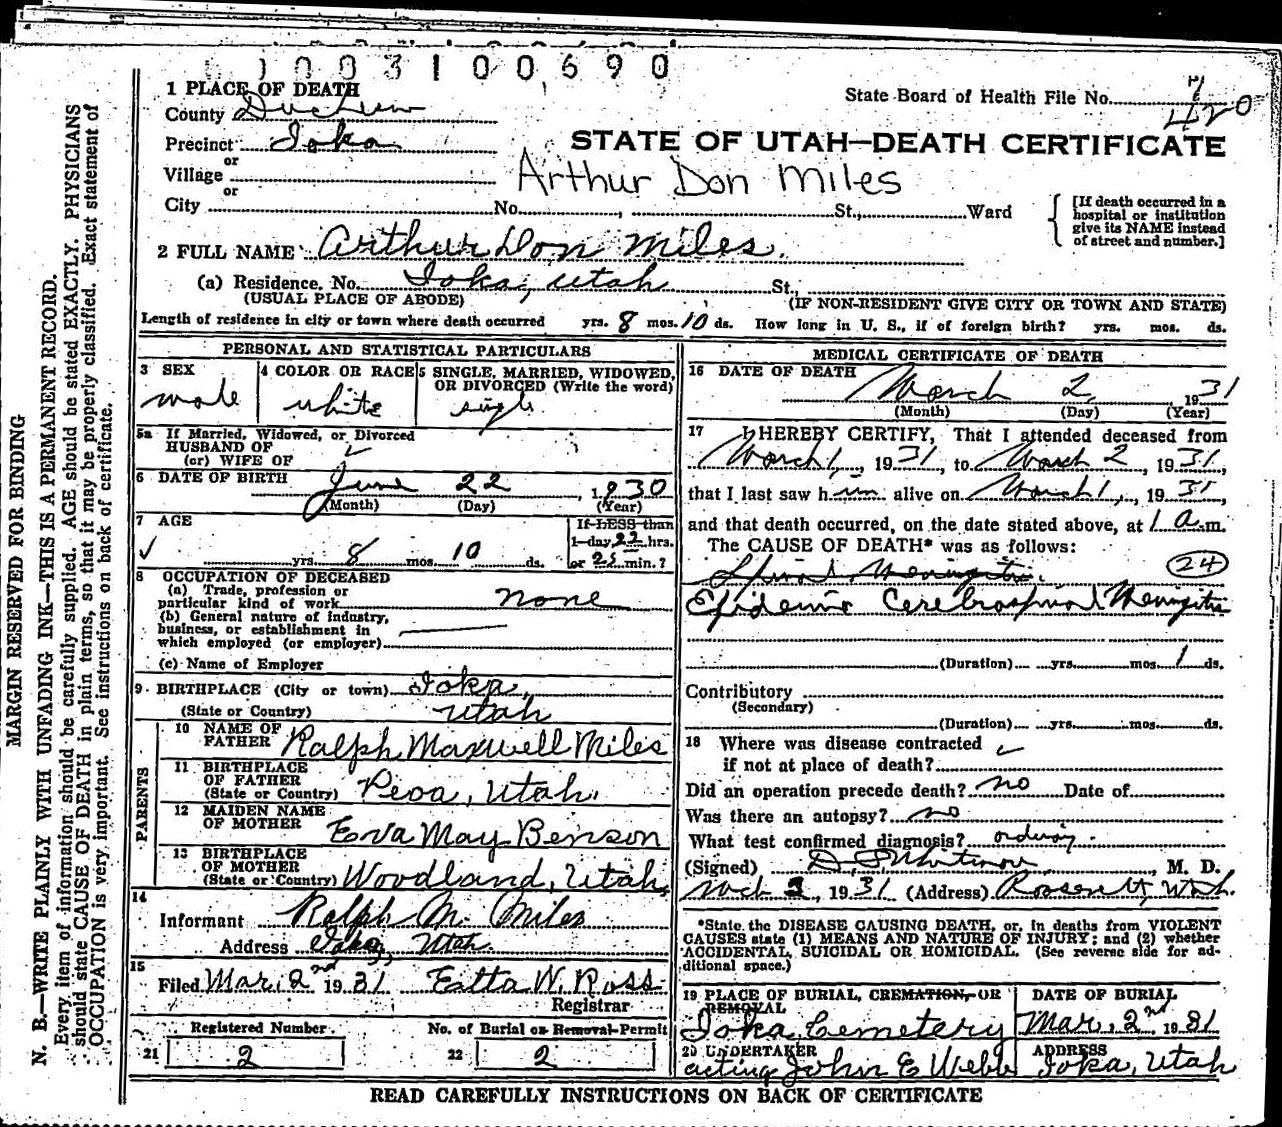 1003100690
1 PLACE OF DEATH
State Board of Health File No. 7
420
County Duchesne
Precinct Ioka
STATE OF UTAH—DEATH CERTIFICATE
or
Village
Arthur Don Miles
or
City No. , St., Ward
[If death occurred in a hospital or institution give its NAME instead of street and number.]
2 FULL NAME Arthur Don Miles.
(a) Residence. No. Ioka, Utah St.,
(USUAL PLACE OF ABODE) (IF NON-RESIDENT GIVE CITY OR TOWN AND STATE)
Length of residence in city or town where death occurred yrs. 8 mos. 10 ds. How long in U. S., if of foreign birth? yrs. mos. ds.
PERSONAL AND STATISTICAL PARTICULARS
3 SEX
male
4 COLOR OR RACE
white
5 SINGLE, MARRIED, WIDOWED, OR DIVORCED (Write the word)
single
5a If Married, Widowed, or Divorced
HUSBAND OF
(or) WIFE OF
6 DATE OF BIRTH June 22, 1930
(Month) (Day) (Year)
7 AGE
yrs. 8 mos. 10 ds.
If LESS than
1 day 22 hrs.
or 25 min.?
8 OCCUPATION OF DECEASED
(a) Trade, profession or
particular kind of work none
(b) General nature of industry,
business, or establishment in
which employed (or employer)
(c) Name of Employer
9 BIRTHPLACE (City or town) Ioka,
(State or Country) Utah
PARENTS
10 NAME OF
FATHER Ralph Maxwell Miles
11 BIRTHPLACE
OF FATHER
(State or Country) Peoa, Utah.
12 MAIDEN NAME
OF MOTHER Erva May Benson
13 BIRTHPLACE
OF MOTHER
(State or Country) Woodland, Utah
14
Informant Ralph M. Miles
Address Ioka, Utah
15
Filed Mar. 2nd 1931 Etta W. Ross
Registrar
Registered Number
21 2
No. of Burial or Removal Permit
22 2
MEDICAL CERTIFICATE OF DEATH
16 DATE OF DEATH
March 2, 1931
(Month) (Day) (Year)
17 I HEREBY CERTIFY, That I attended deceased from
March 1, 1931, to March 2 1931,
that I last saw him alive on March 1, 1931,
and that death occurred, on the date stated above, at 1 a.m.
The CAUSE OF DEATH* was as follows:
Spinal Meningitis. 24
Epidemic Cerebrospinal Meningitis
(Duration) yrs. mos. 1 ds.
Contributory
(Secondary)
(Duration) yrs. mos. ds.
18 Where was disease contracted
if not at place of death?
Did an operation precede death? no Date of
Was there an autopsy? no
What test confirmed diagnosis?
(Signed) , M. D.
Mch 2, 1931 (Address) Roosevelt, Utah.
*State the DISEASE CAUSING DEATH, or, in deaths from VIOLENT
CAUSES state (1) MEANS AND NATURE OF INJURY; and (2) whether
ACCIDENTAL, SUICIDAL OR HOMICIDAL. (See reverse side for ad-
ditional space.)
19 PLACE OF BURIAL, CREMATION, OR
REMOVAL
Ioka Cemetery
DATE OF BURIAL
Mar. 2nd 1931
20 UNDERTAKER
acting John E Webb
ADDRESS
Ioka, Utah
READ CAREFULLY INSTRUCTIONS ON BACK OF CERTIFICATE
MARGIN RESERVED FOR BINDING
N. B.—WRITE PLAINLY WITH UNFADING INK—THIS IS A PERMANENT RECORD.
Every item of information should be carefully supplied. AGE should be stated EXACTLY. PHYSICIANS
should state CAUSE OF DEATH in plain terms, so that it may be properly classified. Exact statement of
OCCUPATION is very important. See instructions on back of certificate.